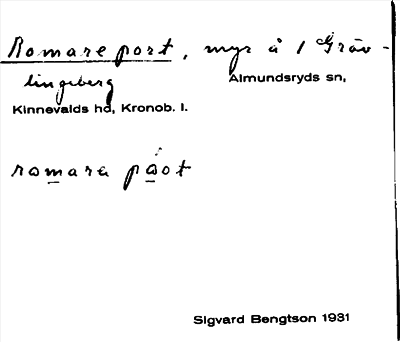 Romare port, myr å 1 Gräv-
lingeberg Almundsryds sn,
Kinnevalds hd, Kronob. l.
romara påot
Sigvard Bengtson 1931